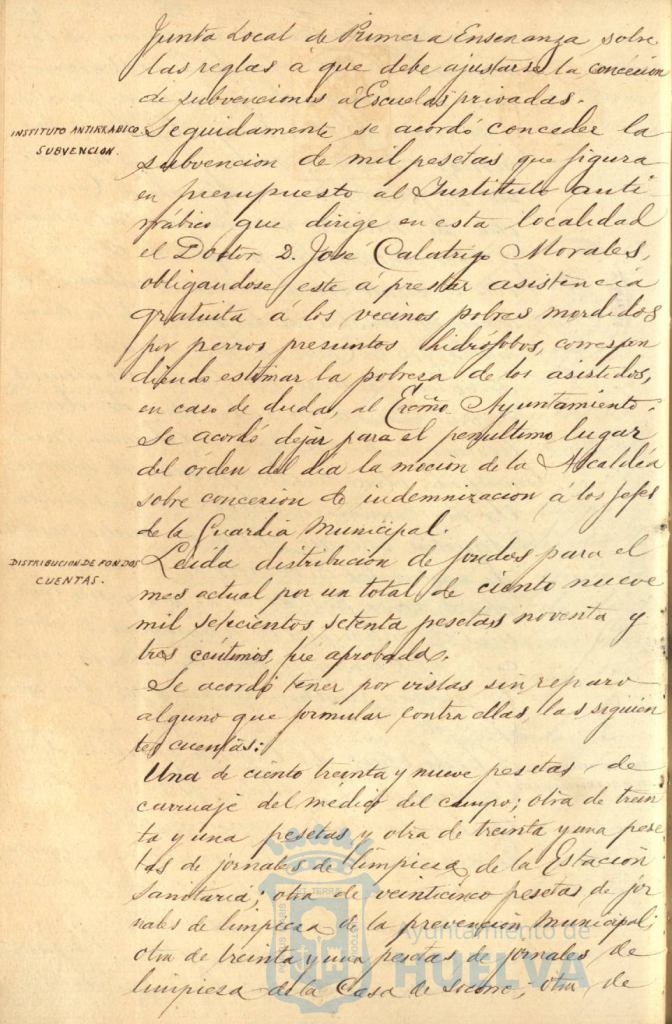 Junta Local de Primera Enseñanza sobre
las reglas á que debe ajustarse la concesion
de subvenciones á Escuelas privadas.
INSTITUTO ANTIRRABICO
SUBVENCION.
Seguidamente se acordó conceder la
subvencion de mil pesetas que figura
en presupuesto al Instituto anti
rrábico que dirige en esta localidad
el Doctor D. José Calatrigo Morales,
obligandose este á prestar asistencia
gratuita á los vecinos pobres mordidos
por perros presuntos hidrófobos, correspon
diendo estimar la pobreza de los asistidos,
en caso de duda, al Excmo. Ayuntamiento.
Se acordó dejar para el penultimo lugar
del órden del dia la mocion de la Alcaldía
sobre concesion de indemnizacion á los Jefes
de la Guardia Municipal.
DISTRIBUCION DE FONDOS
CUENTAS.
Leida distribucion de fondos para el
mes actual por un total de ciento nueve
mil setecientos setenta pesetas noventa y
tres centimos, fue aprobada.
Se acordó tener por vistas sin reparo
alguno que formular contra ellas, las siguien
tes cuentas:
Una de ciento treinta y nueve pesetas de
carruaje del médico del campo; otra de trein
ta y una pesetas y otra de treinta y una pese
tas de jornales de limpieza de la Estación
Sanitaria; otra de veinticinco pesetas de jor
nales de limpieza de la prevención Municipal;
otra de treinta y una pesetas de jornales de
limpieza de la Casa de Socorro; otra de
Ayuntamiento de
HUELVA